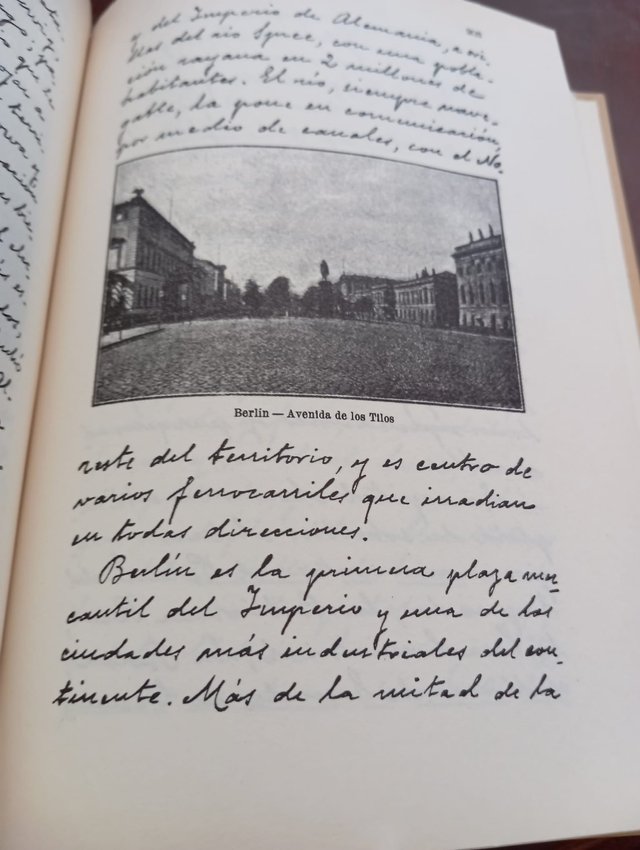 y del Imperio de Alemania, a ori-
llas del río Spree, con una pobla-
ción rayana en 2 millones de
habitantes. El río, siempre nave-
gable, la pone en comunicación,
por medio de canales, con el No-
Berlín — Avenida de los Tilos
reste del territorio, y es centro de
varios ferrocarriles que irradian
en todas direcciones.
Berlín es la primera plaza mer-
cantil del Imperio y una de las
ciudades más industriales del con-
tinente. Más de la mitad de la